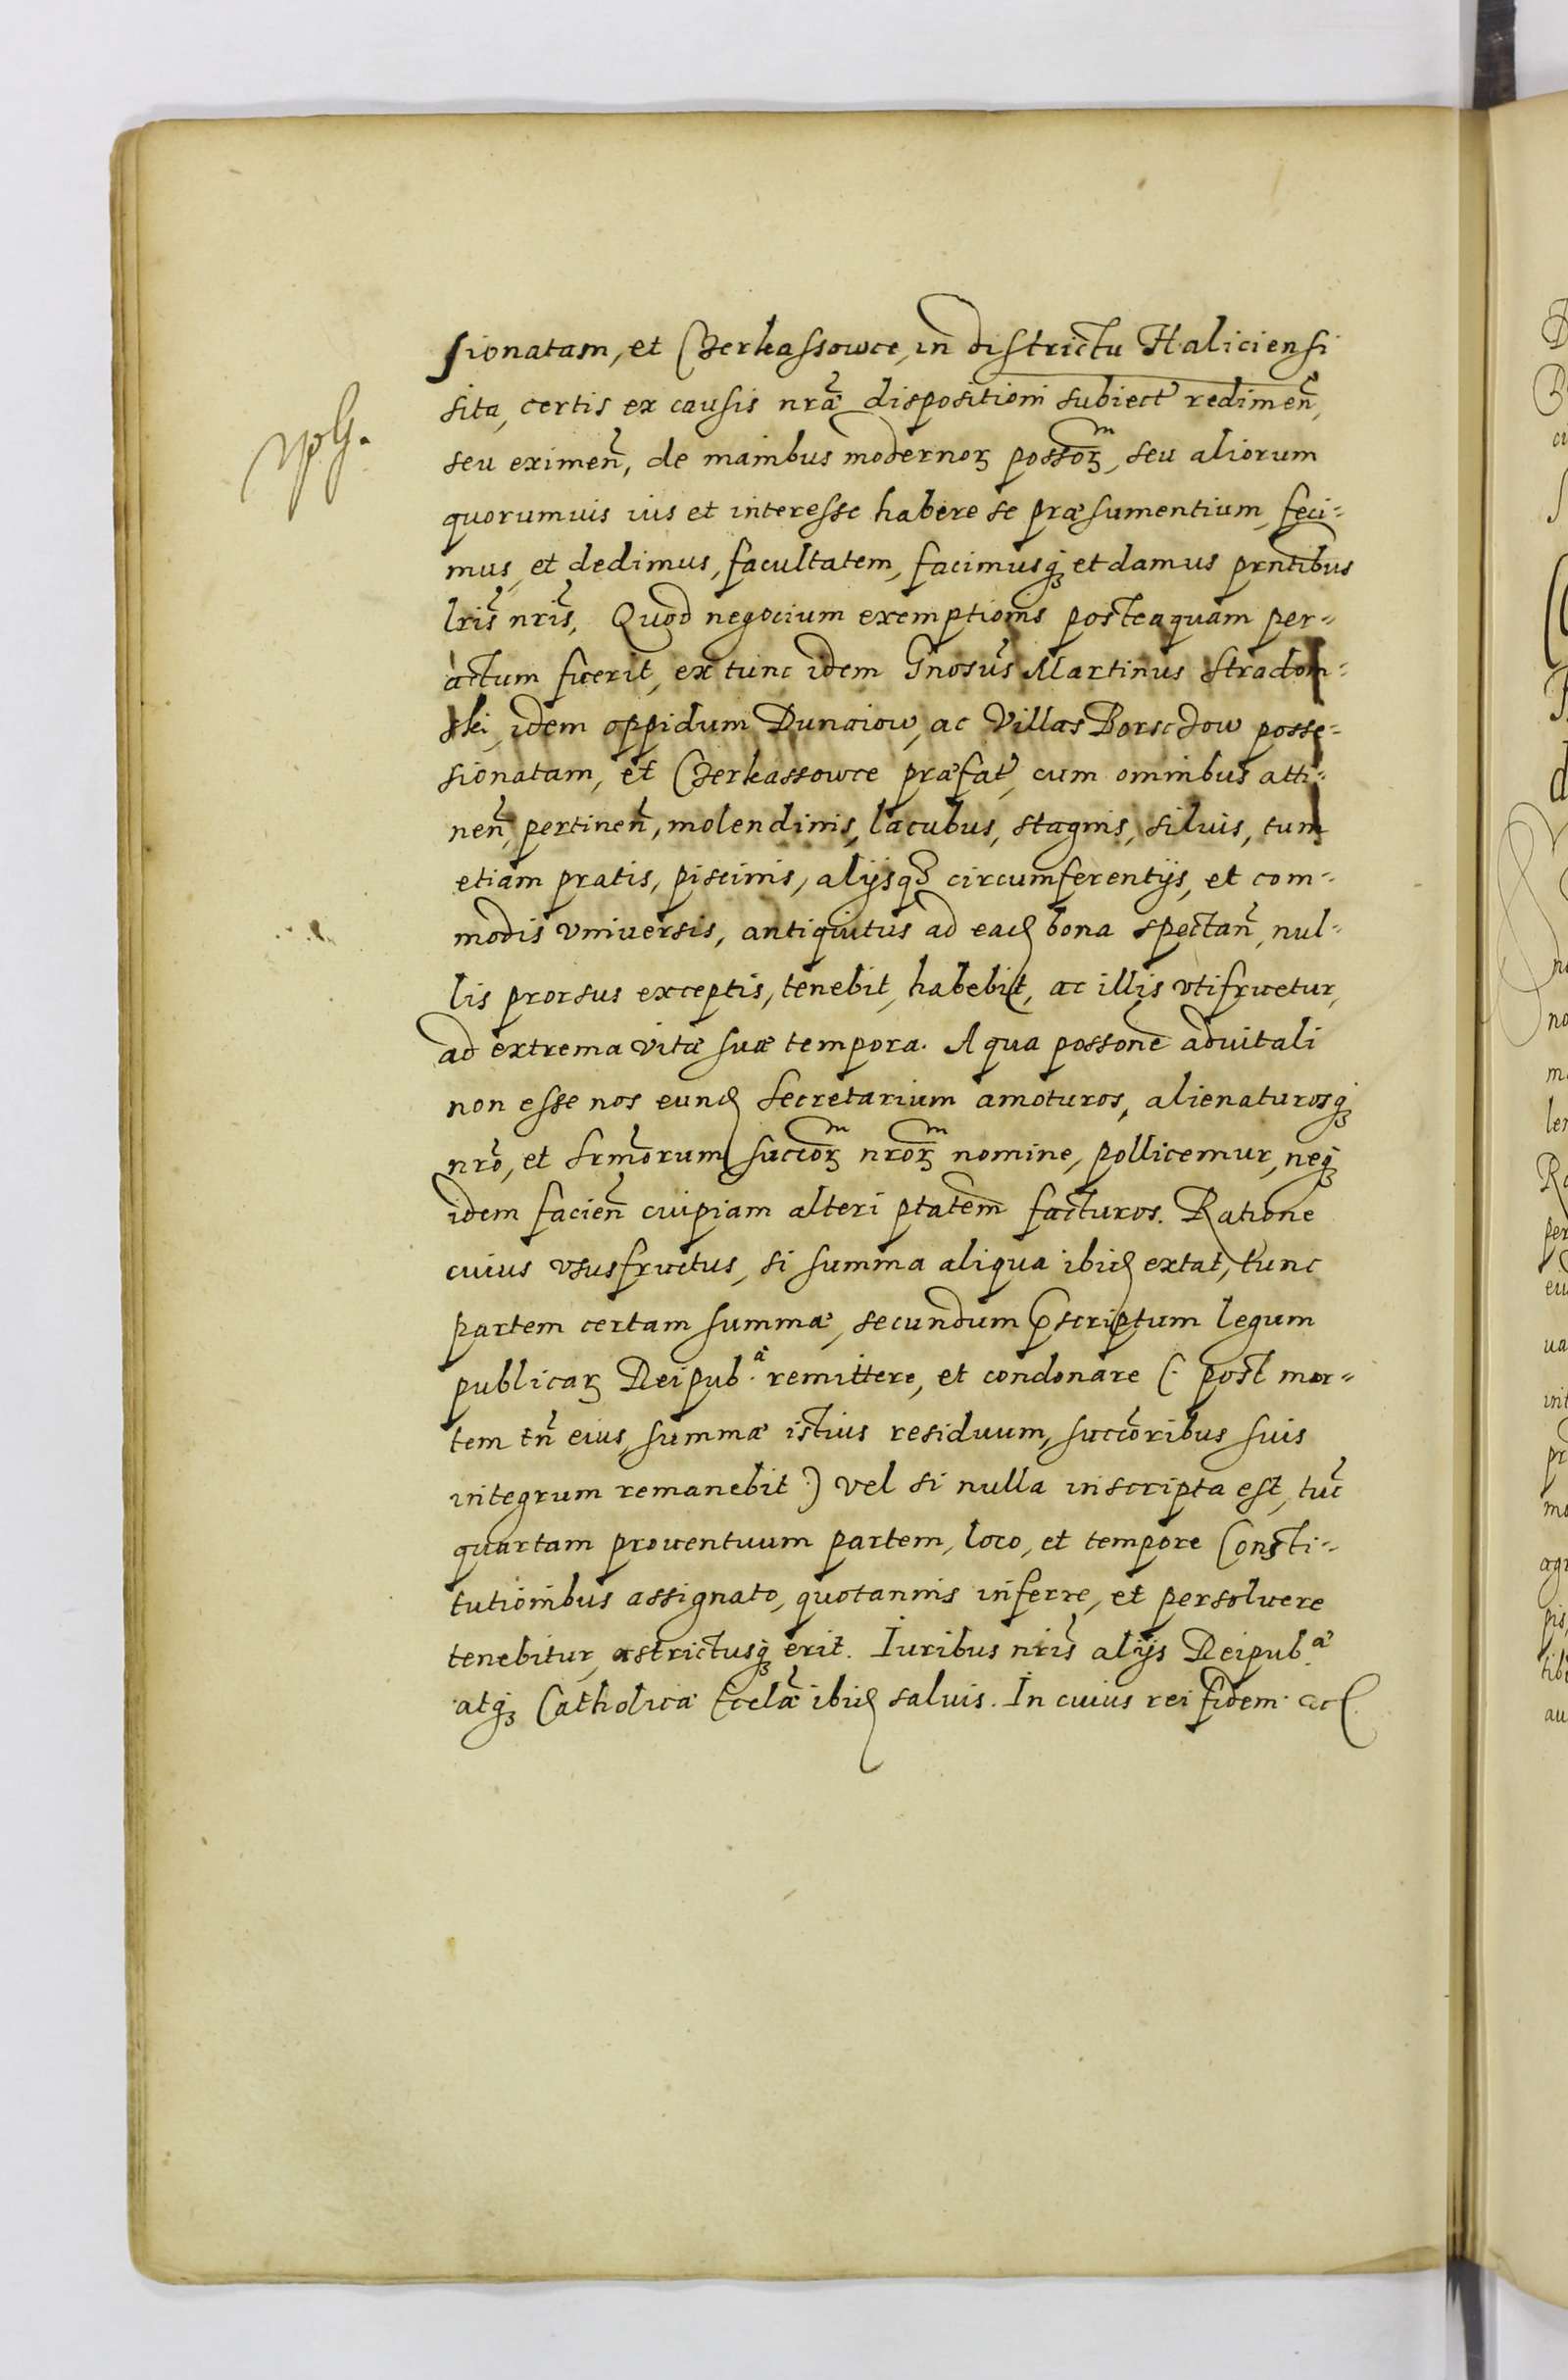 sionatam, et Czerkassowce, in districtu Haliciensi
sita, certis ex causis nrae dispositioni subiect redimen,
seu eximen, de manibus modernoꝝ possoꝝᵐ, seu aliorum
quorumuis ius et interesse habere se præsumentium, feci-
mus, et dedimus, facultatem, facimusqꝫ et damus prntibus
lris nris, Quod negocium exemptionis posteaquam per-
actum fuerit, ex tunc idem Gnosus Martinus Stradom-
ski, idem oppidum Dunaiow, ac Villas Borsczow posse-
sionatam, et Czerkassowce præfat, cum omnibus atti-
nen, pertinen, molendinis, lacubus, stagnis, siluis, tum
etiam pratis, piscinis, alijsqꝫ circumferentijs, et com-
modis vniuersis, antiquitus ad eaꝺ bona spectan, nul-
lis prorsus exceptis, tenebit, habebit, ac illis vtifruetur,
ad extrema vitæ suæ tempora. A qua possone aduitali
non esse nos eunꝺ Secretarium amoturos, alienaturosqꝫ
nro, et Srmorum succoꝝᵐ nroꝝᵐ nomine, pollicemur, neqꝫ
idem facien cuipiam alteri ptatem facturos. Ratione
cuius vsusfructus, si summa aliqua ibiꝺ extat, tunc
partem certam summæ, secundum ꝓscriptum legum
publicaꝝ Reipub.ᵃ remittere, et condonare (. post mor-
tem tn eius, summæ istius residuum, succoribus suis
integrum remanebit .) vel si nulla inscripta est, tuc
quartam prouentuum partem, loco, et tempore Consti-
tutionibus assignato, quotannis inferre, et persoluere
tenebitur, astrictusqꝫ erit. Iuribus nris alijs Reipub.æ
atqꝫ Catholicæ Ecclæ ibiꝺ saluis. In cuius rei fidem. &c